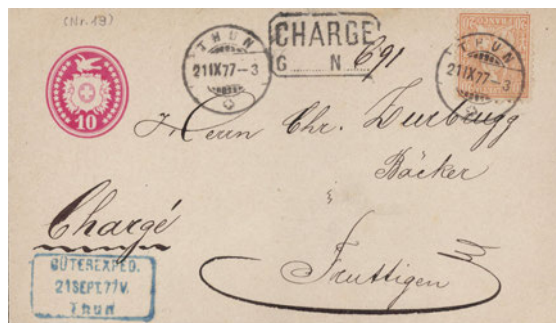 (Nr. 19)
THUN
21 IX 77-3
CHARGÉ
G N. 691
THUN
21 IX 77-3
10
Herrn Chr. Zurbrügg
Bäcker
Chargé
Fruttigen
GÜTEREXPED.
21 SEPT. 77 V.
THUN